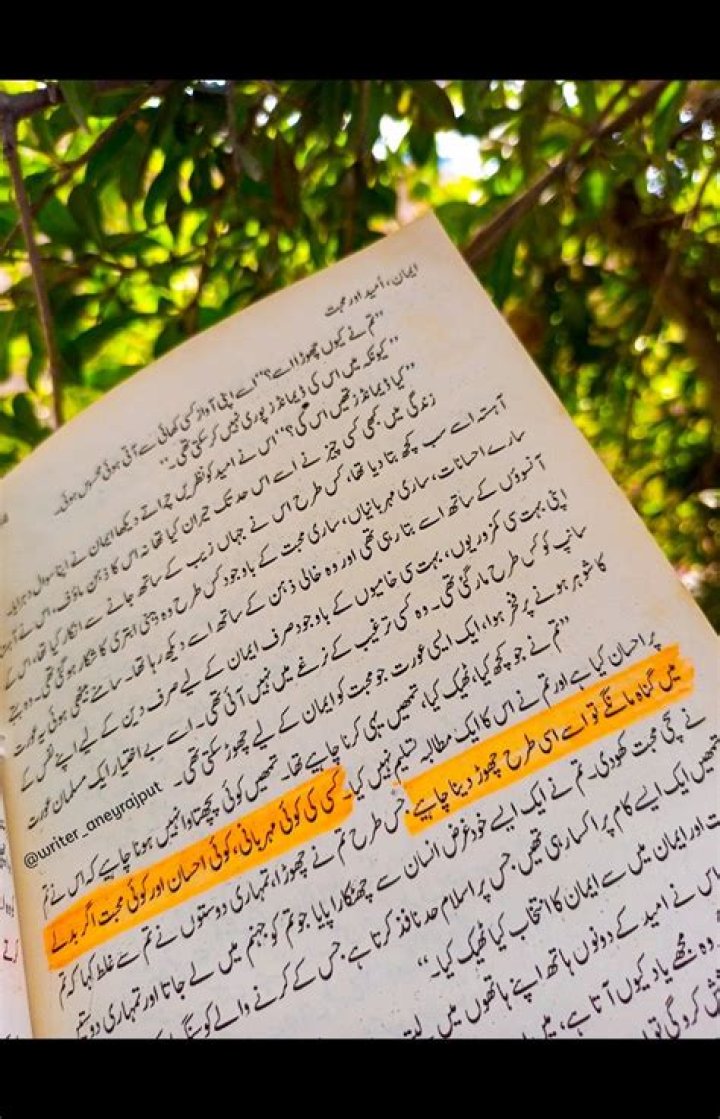 ایمان، اُمید اور محبت
”تم نے کیوں چھوڑا اسے؟“ اسے اپنی آواز کسی کھائی سے آتی ہوئی محسوس ہوئی۔
”کیونکہ میں اس کی ڈیمانڈز پوری نہیں کر سکتی تھی۔“
”کیا ڈیمانڈز تھیں اس کی؟“ اس نے امید کو نظریں چراتے دیکھا ایمان نے اپنا سوال دہرایا۔
زندگی میں کبھی کسی چیز نے اسے اس حد تک حیران کیا تھا نہ اس کا ذہن ماؤف، اس نے آہستہ
آہستہ اسے سب کچھ بتا دیا تھا، کس طرح اس نے جہاں زیب کے ساتھ جانے سے انکار کیا تھا، اس کے
سارے احسانات، ساری مہربانیاں، ساری محبت کے باوجود کس طرح وہ ذہنی ابتری کا شکار ہو گئی تھی۔ وہ بہتے
آنسوؤں کے ساتھ اسے بتا رہی تھی اور وہ خالی ذہن کے ساتھ اسے دیکھ رہا تھا۔ سامنے بیٹھی ہوئی یہ عورت
اپنی بہت سی کمزوریوں، بہت سی خامیوں کے باوجود صرف ایمان کے لیے صرف دین کے لیے اپنے نفس کے
سانپ کو کس طرح مار گئی تھی۔ وہ کسی ترغیب کے نرغے میں نہیں آئی تھی۔ اسے بے اختیار ایک مسلمان عورت
کا شوہر ہونے پر فخر ہوا، ایک ایسی عورت جو محبت کو ایمان کے لیے چھوڑ سکتی تھی۔
”تم نے جو کچھ کیا، ٹھیک کیا، تمھیں یہی کرنا چاہیے تھا۔ تمھیں کوئی پچھتاوا نہیں ہونا چاہیے کہ اس نے تم
پر احسان کیا ہے اور تم نے اس کا ایک مطالبہ تسلیم نہیں کیا۔ کسی کی کوئی مہربانی، کوئی احسان اور کوئی محبت اگر بدلے
میں گناہ مانگے تو اسے اسی طرح چھوڑ دینا چاہیے جس طرح تم نے چھوڑا، تمہاری دوستوں نے تم سے غلط کہا کہ تم
نے سچی محبت کھو دی۔ تم نے ایک ایسے خود غرض انسان سے چھٹکارا پایا جو تم کو جہنم میں لے جاتا اور تمہاری دوستیں
تمھیں ایک ایسے کام پر اکسا رہی تھیں جس پر اسلام حد نافذ کرتا ہے جس کے کرنے والے کو
ت اور ایمان میں سے ایمان کا انتخاب کیا ٹھیک کیا۔“
اس نے امید کے دونوں ہاتھ اپنے ہاتھوں میں
وہ مجھے یاد کیوں آتا ہے، میں
ش کرو گی تو
@writer_aneyrajput